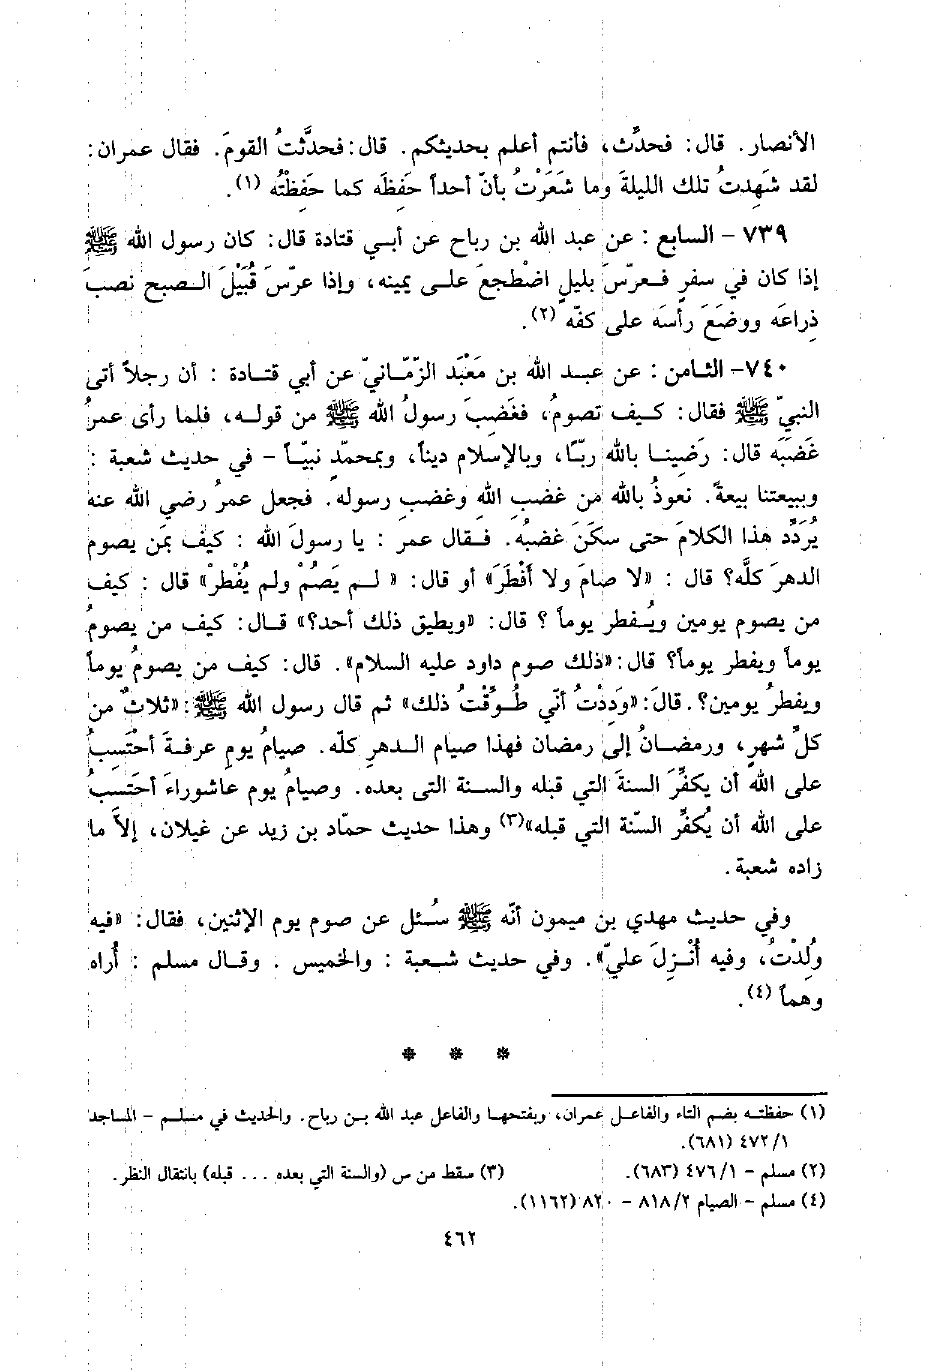 الأنصار. قال: فحدِّث، فأنتم أعلم بحديثكم. قال: فحدَّثتُ القومَ. فقال عمران:
لقد شَهِدتُ تلك الليلةَ وما شَعَرْتُ بأنّ أحداً حَفِظَه كما حَفِظْتُه (١).
٧٣٩ - السابع: عن عبد الله بن رباح عن أبي قتادة قال: كان رسول الله ﷺ
إذا كان في سفرٍ فعرّسَ بليلٍ اضْطجعَ على يمينه، وإذا عرّسَ قُبَيْلَ الصبح نصبَ
ذراعَه ووضَعَ رأسَه على كفّه (٢).
٧٤٠- الثامن: عن عبد الله بن مَعْبَد الزِّمّانيّ عن أبي قتادة: أن رجلاً أتى
النبيّ ﷺ فقال: كيف تصومُ، فغَضِبَ رسولُ الله ﷺ من قوله، فلما رأى عمرُ
غَضَبَه قال: رَضِينا بالله ربّاً، وبالإسلام ديناً، وبمحمّدٍ نبيّاً - في حديث شعبة:
وببيعتنا بيعةً. نعوذُ بالله من غضبِ الله وغضبِ رسوله. فجعل عمرُ رضي الله عنه
يُرَدِّد هذا الكلامَ حتى سكَنَ غضبُه. فقال عمر: يا رسولَ الله: كيف بمَن يصوم
الدهرَ كلَّه؟ قال: «لا صامَ ولا أَفْطَرَ» أو قال: «لم يَصُمْ ولم يُفْطرْ» قال: كيف
من يصوم يومين ويُفطر يوماً؟ قال: «ويطيق ذلك أحد؟» قال: كيف من يصومُ
يوماً ويفطر يوماً؟ قال: «ذلك صوم داود عليه السلام». قال: كيف من يصومُ يوماً
ويفطرُ يومين؟. قالَ: «وَدِدْتُ أنّي طُوِّقْتُ ذلك» ثم قال رسول الله ﷺ: «ثلاثٌ من
كلِّ شهرٍ، ورمضانُ إلى رمضان فهذا صيام الدهرِ كلّه. صيامُ يومِ عرفةَ أحْتَسِبُ
على الله أن يكفِّرَ السنةَ التي قبله والسنة التى بعده. وصيامُ يوم عاشوراءَ أحتَسبُ
على الله أن يُكفِّر السّنة التي قبله»(٣) وهذا حديث حمّاد بن زيد عن غيلان، إلاَّ ما
زاده شعبة.
وفي حديث مهدي بن ميمون أنّه ﷺ سُئل عن صوم يوم الإثنين، فقال: «فيه
وُلِدْتُ، وفيه أُنْزِلَ عليّ». وفي حديث شعبة: والخميس. وقال مسلم: أُراه
وهماً (٤).
* * *
(١) حفظته بضم التاء والفاعل عمران، وبفتحها والفاعل عبد الله بن رباح. والحديث في مسلم - المساجد
٤٧٢/١ (٦٨١).
(٢) مسلم - ٤٧٦/١ (٦٨٣). (٣) سقط من س (والسنة التي بعده ... قبله) بانتقال النظر.
(٤) مسلم - الصيام ٨١٨/٢ - ٨٢٠ (١١٦٢).
٤٦٢